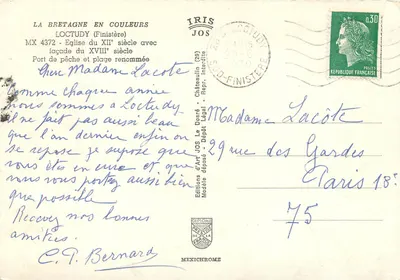 LA BRETAGNE EN COULEURS
LOCTUDY (Finistère)
MX 4372 - Eglise du XIIe siècle avec
façade du XVIIIe siècle
Port de pêche et plage renommée
Chère Madame Lacôte
Comme chaque année
nous sommes à Loctudy,
il ne fait pas aussi beau
que l'an dernier enfin on
se repose je suppose que
vous êtes en cure et que
vous vous portez aussi bien
que possible
Recevez nos bonnes
amitiés.
Bernard
IRIS
JOS
Editions d'Art JOS Le Doaré - Châteaulin (29)
Modèle déposé - Dépôt Légal - Repr. interdite
MEXICHROME
LOCTUDY
FINISTERE
0,30
POSTES
REPUBLIQUE FRANÇAISE
Madame Lacôte
29 rue des Gardes
Paris 18e
75